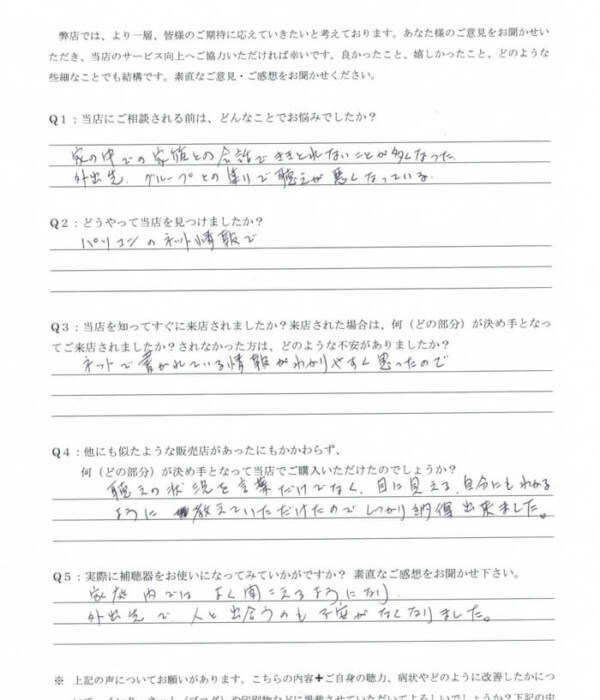 弊店では、より一層、皆様のご期待に応えていきたいと考えております。あなた様のご意見をお聞かせい
ただき、当店のサービス向上へご協力いただければ幸いです。良かったこと、嬉しかったこと、どのような
些細なことでも結構です。素直なご意見・ご感想をお聞かせください。
Q1：当店にご相談される前は、どんなことでお悩みでしたか？
家の中での家族との会話できき​とれないことが多くなった
外出先、グループとの集りで聴えが悪くなっている。
Q2：どうやって当店を見つけましたか？
パソコンのネット情報で
Q3：当店を知ってすぐに来店されましたか？来店された場合は、何（どの部分）が決め手となっ
てご来店されましたか？されなかった方は、どのような不安がありましたか？
ネットで書かれている情報がわかりやすく思ったので
Q4：他にも似たような販売店があったにもかかわらず、
何（どの部分）が決め手となって当店でご購入いただけたのでしょうか？
聴えの状況を言葉だけでなく、目に見える、自分にもわかる
ように教えていただけたのでしっかり納得出来ました。
Q5：実際に補聴器をお使いになってみていかがですか？ 素直なご感想をお聞かせ下さい。
家庭内ではよく聞こえるようになり
外出先で、人と出合うのも不安がなくなりました。
※ 上記の声についてお願いがあります。こちらの内容＋ご自身の聴力、病状やどのように改善したかにつ